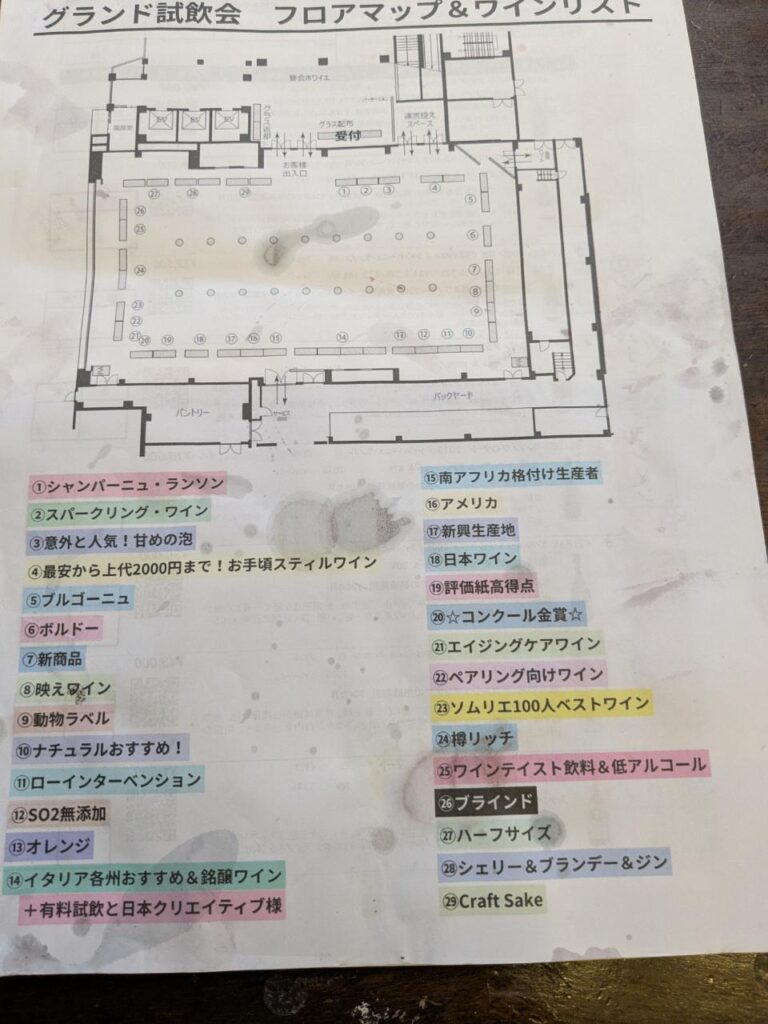 グランド試飲会 フロアマップ＆ワインリスト
宴会ホワイエ
EV EV EV
グラス返却
グラス配布
受付
お客様
出入口
スペース
㉗ ㉘ ㉙ ① ② ③ ④
㉖ ⑤
㉕ ⑥
㉔ ⑦
⑧
㉓ ⑨
㉒
㉑ ⑳ ⑲ ⑱ ⑰ ⑯ ⑮ ⑭ ⑬ ⑫ ⑪ ⑩
パントリー
サービス
バックヤード
①シャンパーニュ・ランソン
②スパークリング・ワイン
③意外と人気！甘めの泡
④最安から上代2000円まで！お手頃スティルワイン
⑤ブルゴーニュ
⑥ボルドー
⑦新商品
⑧映えワイン
⑨動物ラベル
⑩ナチュラルおすすめ！
⑪ローインターベンション
⑫SO2無添加
⑬オレンジ
⑭イタリア各州おすすめ＆銘醸ワイン
＋有料試飲と日本クリエイティブ様
⑮南アフリカ格付け生産者
⑯アメリカ
⑰新興生産地
⑱日本ワイン
⑲評価紙高得点
⑳☆コンクール金賞☆
㉑エイジングケアワイン
㉒ペアリング向けワイン
㉓ソムリエ100人ベストワイン
㉔樽リッチ
㉕ワインテイスト飲料＆低アルコール
㉖ブラインド
㉗ハーフサイズ
㉘シェリー＆ブランデー＆ジン
㉙Craft Sake